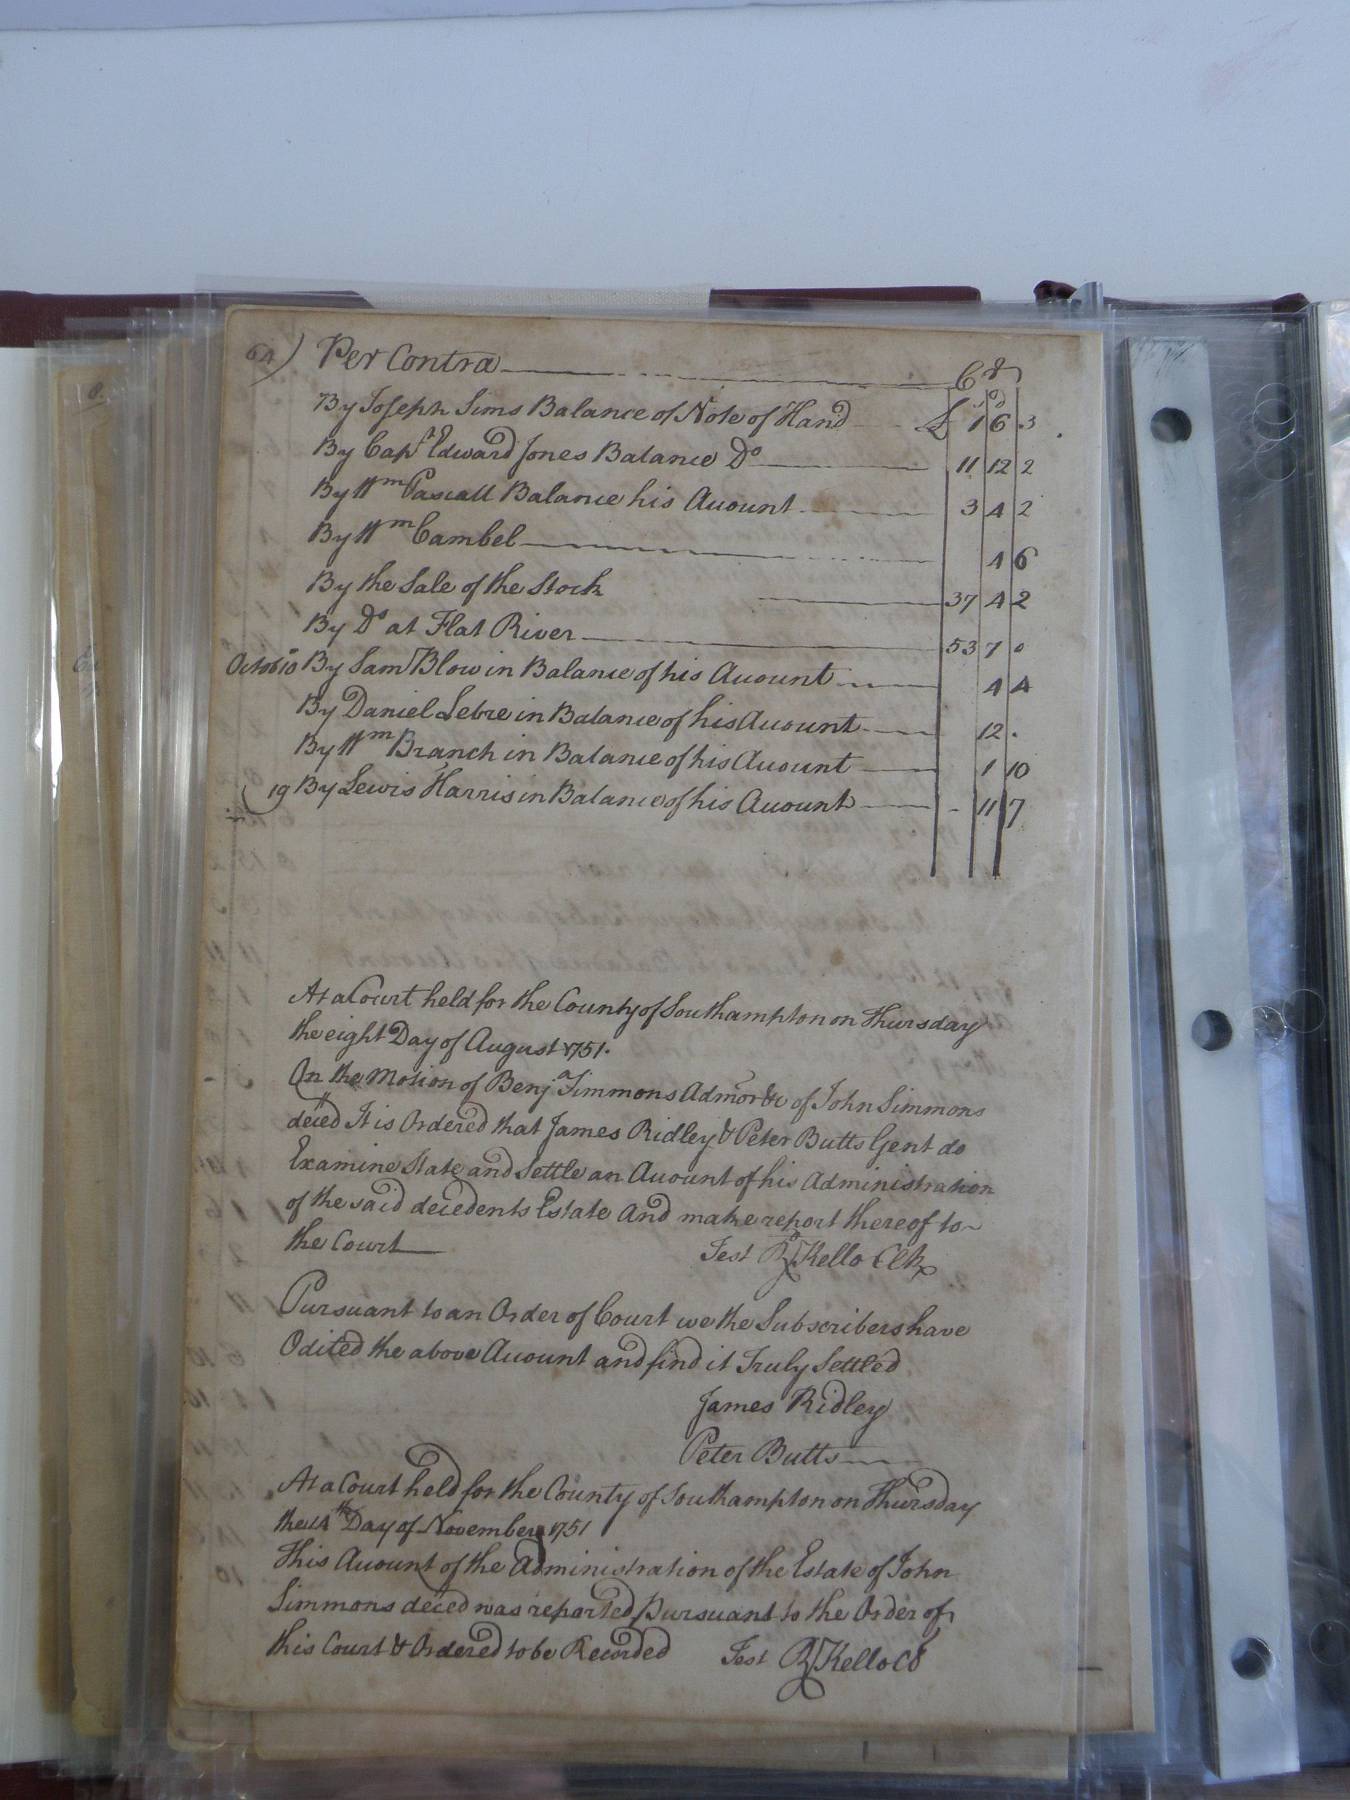 64) Per Contra Cr
s d
By Joseph Sims Balance of Note of Hand £ 1 6 3
By Capt Edward Jones Balance Do 11 12 2
By Wm Pascall Balance his Account 3 4 2
By Wm Cambel 4 6
By the Sale of the Stock 37 4 2
By Do at Flat River 53 7 0
Octobr 10 By Saml Blow in Balance of his Account 4 4
By Daniel Lebre in Balance of his Account 12 .
By Wm Branch in Balance of his Account 1 10
19 By Lewis Harris in Balance of his Account - 11 7
At a Court held for the County of Southampton on Thursday
the eight Day of August 1751.
On the Motion of Benja Simmons Admor &c of John Simmons
deced It is Ordered that James Ridley & Peter Butts Gent do
Examine State and Settle an Account of his Administration
of the said decedents Estate And make report thereof to
the Court Test Rd Kello Clk
Pursuant to an Order of Court we the Subscribers have
Odited the above Account and find it Truly Settled
James Ridley
Peter Butts
At a Court held for the County of Southampton on Thursday
the 14th Day of November 1751
This Account of the Administration of the Estate of John
Simmons deced was reported Pursuant to the Order of
this Court & Ordered to be Recorded Test Rd Kello Cl